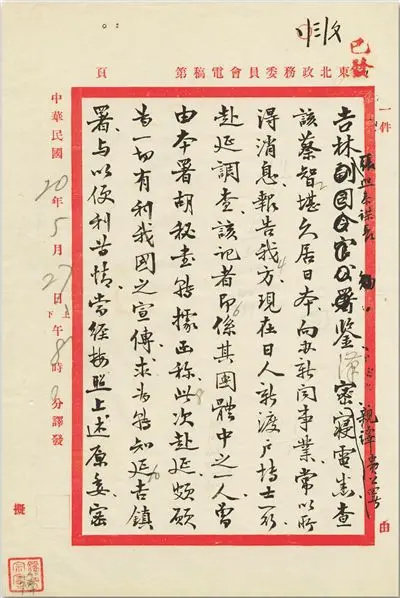 已發
東北政務委員會電稿第 頁
一件 由
吉林副司令官公署鑒密寢電悉查
親譯
該蔡智堪久居日本向办新闻事業常以所
得消息報告我方現在日人新渡戶博士一行
赴延調查該記者即係其團體中之一人曾
由本署胡秘書轉據函称此次赴延頗願
為一切有利我國之宣傳求為轉知延吉鎮
署與以便利等情當經按照上述原委密
中華民國20年5月27日上下午8時 分譯發
擬